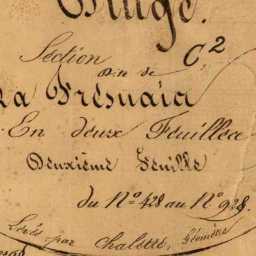 Section C.2
dite de
La Fresnaia
En deux Feuilles
Deuxième Feuille
du N° 428 au N° 928.
Levés par Chalette, Géomètre